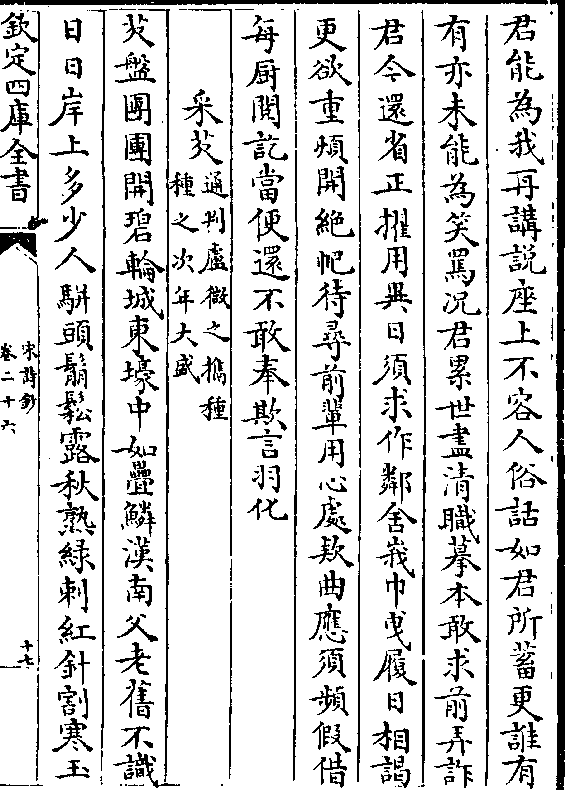 君能為我再講説座上不容人俗話如君所蓄更誰有
有亦未能為笑罵况君累世盡清職摹本敢求前弄詐
君今還省正擢用異日須求作鄰舍峩巾曳履日相謁
更欲重煩開絶帊待尋前輩用心處欵曲應須頻假借
每厨閲訖當便還不敢奉欺言羽化
采芡通判盧微之攜種種之次年大盛
芡盤團團開碧輪城東壕中如疊鱗漢南父老舊不識
日日岸上多少人駢頭鬅鬆露秋熟緑刺紅針割寒玉
欽定四庫全書
宋詩鈔
卷二十六
十七